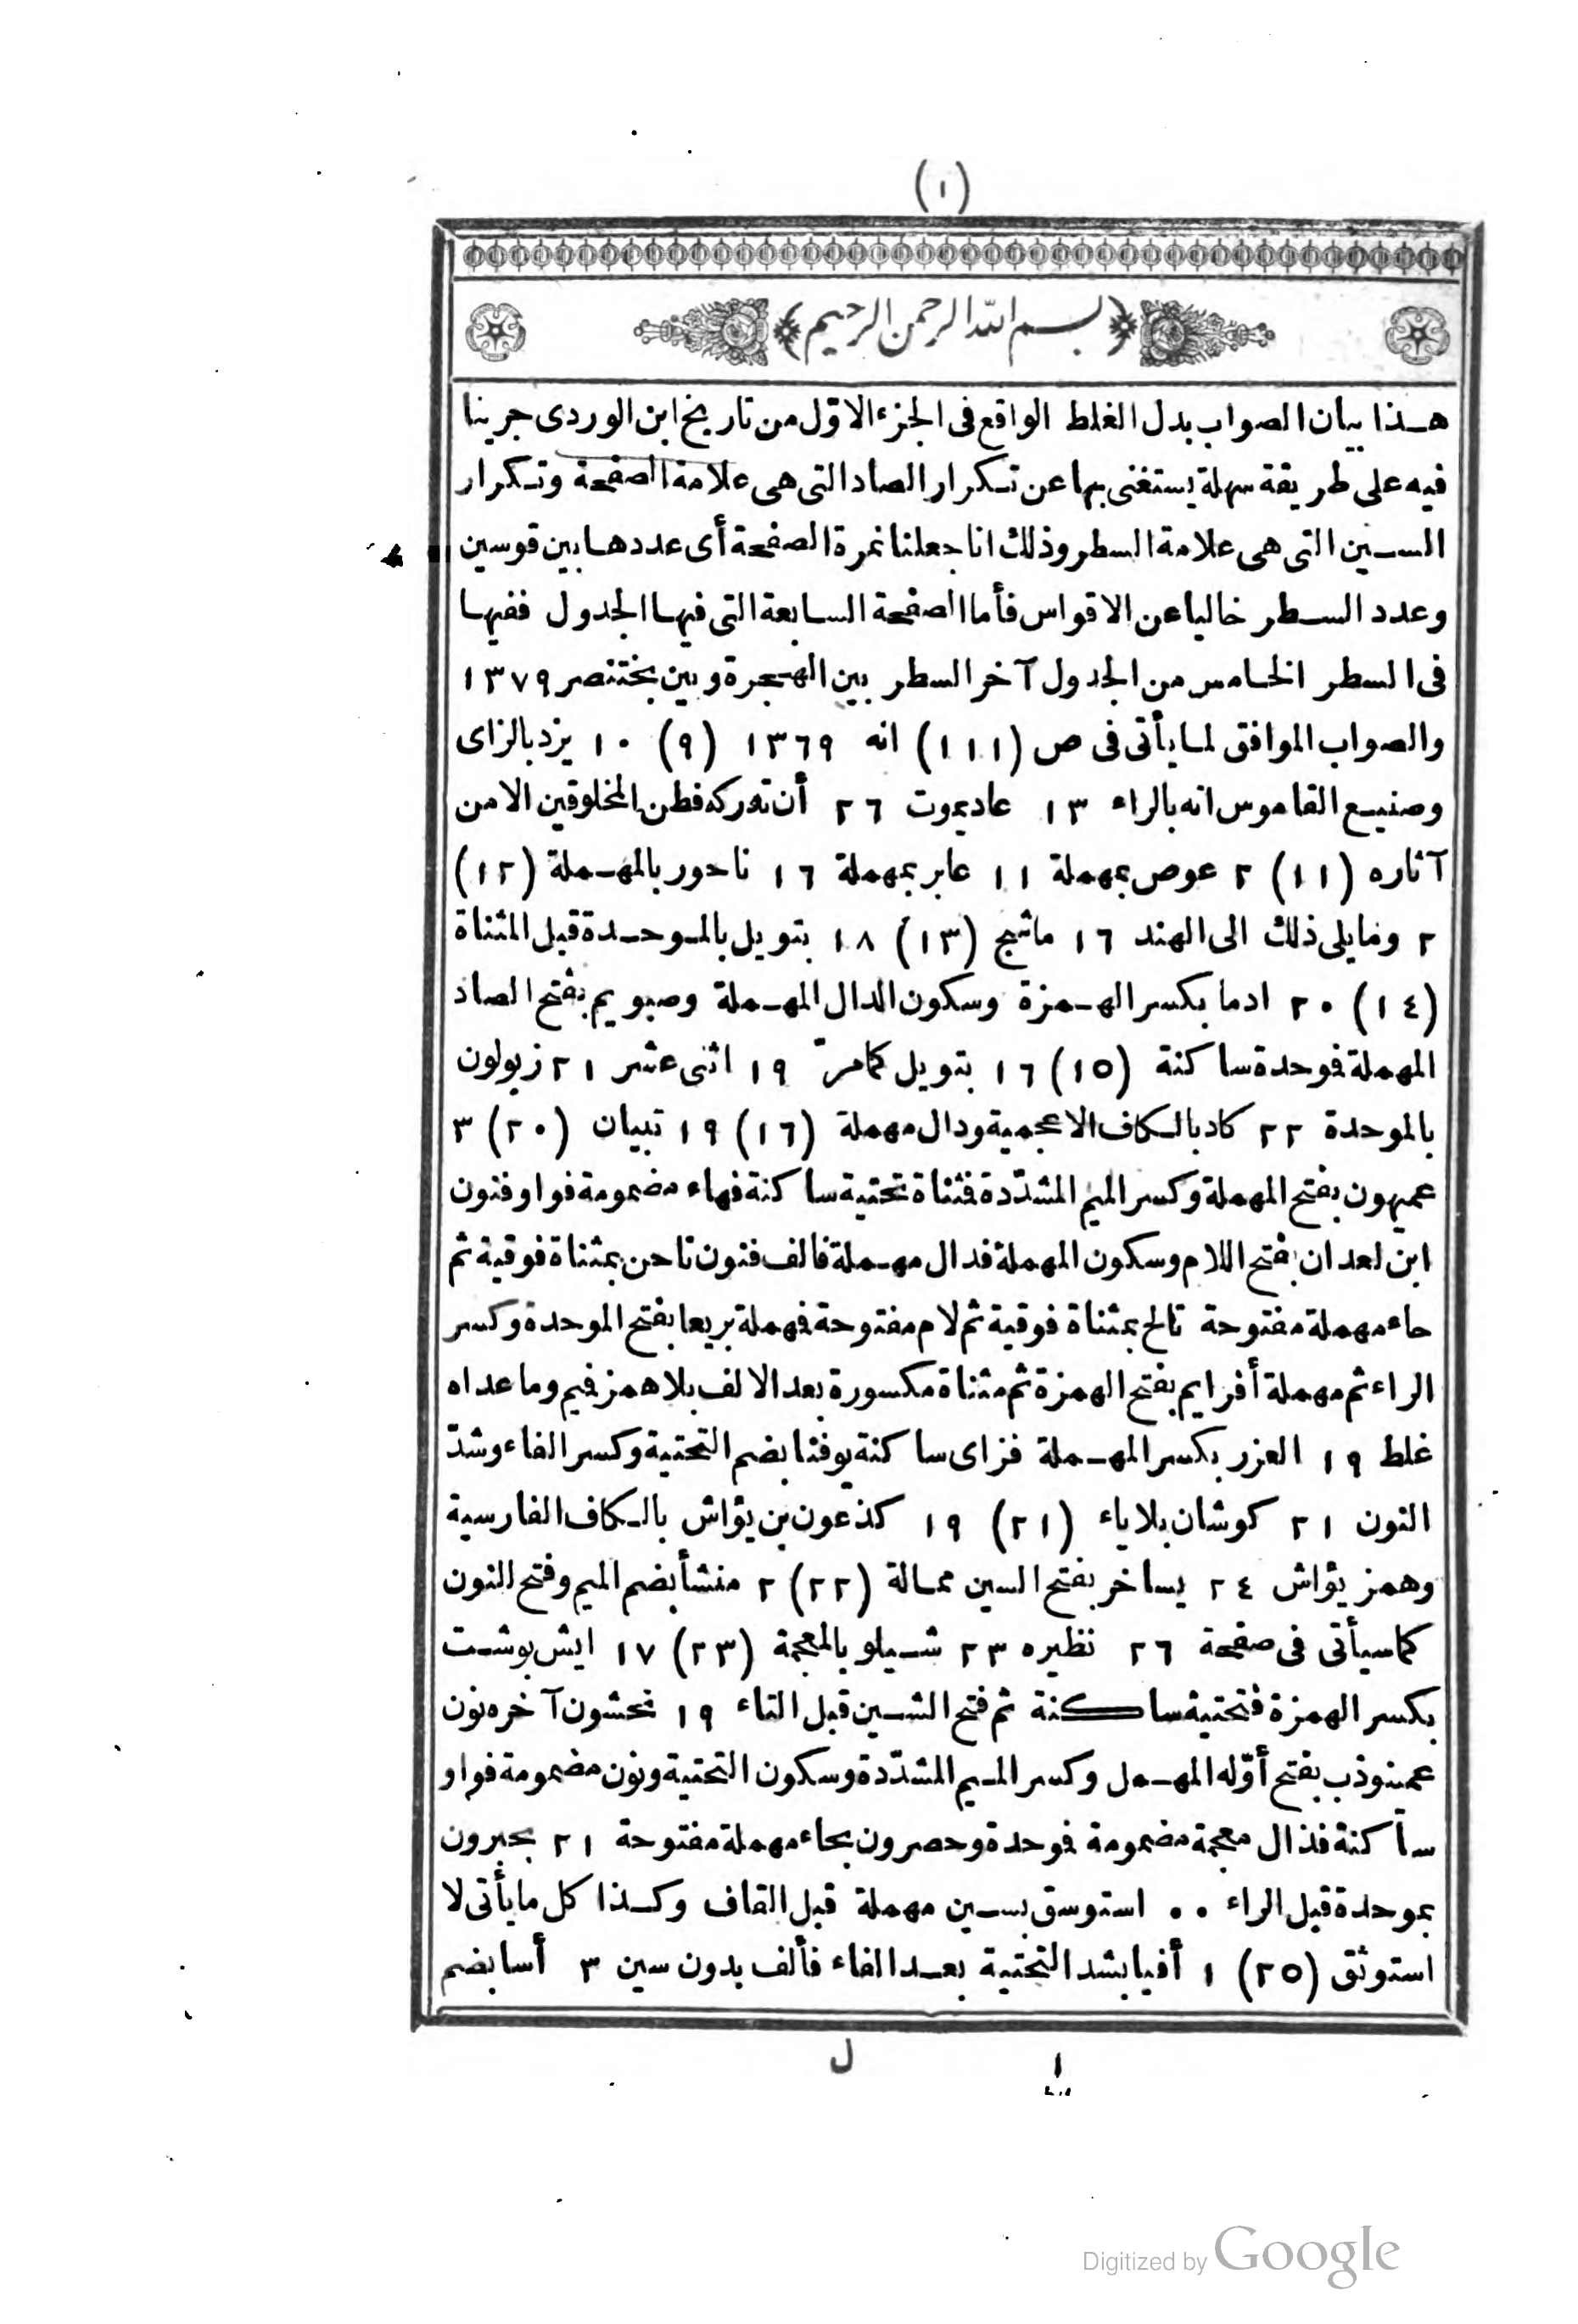 (١)
﴿بسم الله الرحمن الرحيم﴾
هـذا بيان الصواب بدل الغلط الواقع فى الجزء الاوّل من تاريخ ابن الوردى جرينا
فيه على طريقة سهلة يستغنى بها عن تـكرار الصاد التى هى علامة الصفحة وتـكرار
السـين التى هى علامة السطر وذلك انا جعلنا نمرة الصفحة أى عددهـا بين قوسين
وعدد السـطر خاليا عن الاقواس فأما الصفحة السـابعة التى فيهـا الجدول ففيهـا
فى السطر الخـامس من الجدول آخر السطر بين الهـجرة وبين بختنصر ١٣٧٩
والصواب الموافق لمـا يأتى فى ص (١١١) انه ١٣٦٩ (٩) ١٠ يزد بالزاى
وصنيـع القاموس انه بالراء ١٣ عاديموت ٢٦ أن تدركه فطن المخلوقين الا من
آثاره (١١) ٢ عوص بمهملة ١١ عابر بمهملة ١٦ ناحور بالمهـملة (١٢)
٢ وما يلى ذلك الى الهند ١٦ ماشج (١٣) ١٨ بتويل بالمـوحـدة قبل المثناة
(١٤) ٢٠ ادما بكسر الهـمزة وسكون الدال المهـملة وصبويم بفتح الصاد
المهملة فوحدة ساكنة (١٥) ١٦ بتويل كمامرّ ١٩ اثنى عشر ٢١ زبولون
بالموحدة ٢٢ كاد بالـكاف الاعجمية ودال مهملة (١٦) ١٩ تبيان (٢٠) ٣
عميهون بفتح المهملة وكسر الميم المشدّدة فثناة تحتية ساكنة فهاء مضمومة فواو فنون
ابن لعدان بفتح اللام وسكون المهملة فدال مهـملة فالف فنون تاحن بمثناة فوقية ثم
حاء مهملة مفتوحة تالح بمثناة فوقية ثم لام مفتوحة فهملة بريعا بفتح الموحدة وكسر
الراء ثم مهملة أفرايم بفتح الهمزة ثم مثناة مكسورة بعد الالف بلا همز فيم وما عداه
غلط ١٩ العزر بكسر المهـملة فزاى ساكنة يوفنا بضم التحتية وكسر الفاء وشدّ
النون ٢١ كوشان بلاياء (٢١) ١٩ كذعون بن يؤاش بالـكاف الفارسية
وهمز يؤاش ٢٤ يساخر بفتح السين ممـالة (٢٢) ٢ منشأ بضم الميم وفتح النون
كما سيأتى فى صفحة ٢٦ نظيره ٢٣ شـيلو بالمعجمة (٢٣) ١٧ ايش بوشـت
بكسر الهمزة فتحتية ساكنة ثم فتح الشـين قبل التاء ١٩ نحشون آخره نون
عمينوذب بفتح أوّله المهـمل وكسر المـيم المشدّدة وسكون التحتية ونون مضمومة فواو
ساكنة فذال معجمة مضمومة فوحدة وحصرون بحاء مهملة مفتوحة ٢١ بحبرون
بموحدة قبل الراء ٠٠ استوسق بسـين مهملة قبل القاف وكـذا كل ما يأتى لا
استوثق (٢٥) ١ أفيا بشد التحتية بعـد الفاء فألف بدون سين ٣ أسا بضم
ل ١
Digitized by Google